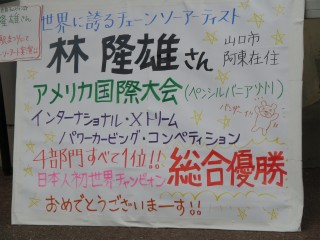 世界に誇るチェーンソーアーティスト
林 隆雄さん
山口市
阿東在住
アメリカ国際大会
インターナショナル・Xトリーム
パワーカービング・コンペティション
4部門すべて1位!!
日本人初世界チャンピオン
総合優勝
おめでとうございまーす!!